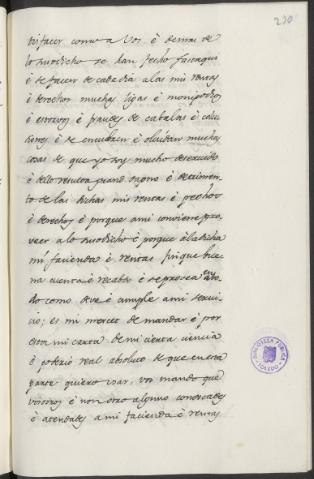 230
trifacer como a Vos è demas de
lo susodicho se han fecho fastaqui
è se facen de cada dia a las mis rentas
è derechos muchas ligas è monipodios
è estorvos è fraudes de cabalas è
è se encubren è olvidan muchas
cosas de que yo soy mucho deservido
è dello resulta grand daño è detrimen-
to de las dichas mis rentas è pechos
è derechos è porque a mi conviene pro-
veer a lo susodicho è porque à la dicha
mi facienda è rentas pongan bue-
na cuenta è recabdo è se provea en to-
do como deve è cumple a mi servi-
cio; es mi merced de mandar è por
esta mi carta de mi cierta ciencia
è poderio real absoluto de que en esta
parte quiero usar, vos mando que
vosotros è non otro alguno conoscades
è atendades a mi facienda è rentas
BIBLIOTECA PUBLICA
TOLEDO